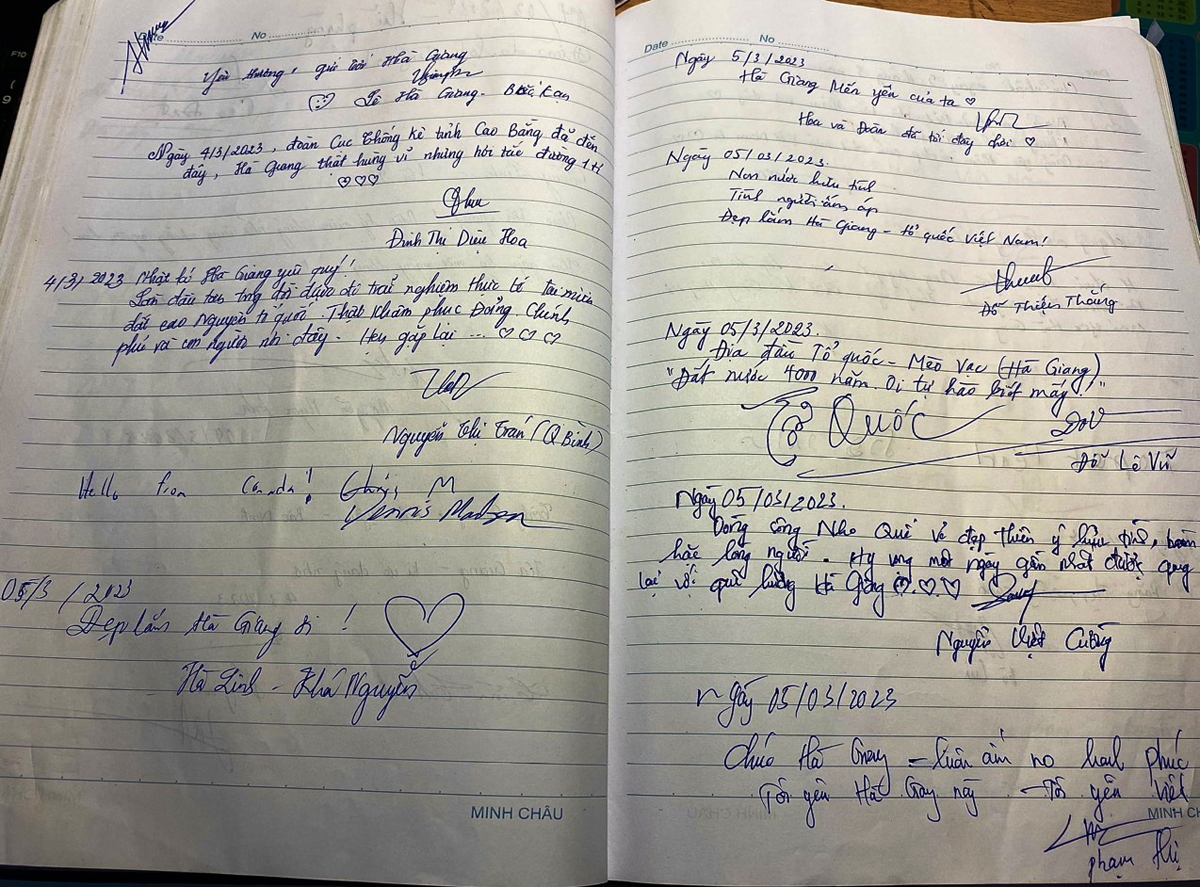 Date No
Yêu thương, gửi tới Hà Giang
Lê Hà Giang - Bắc Kạn
Ngày 4/3/2023, đoàn Cục thống kê tỉnh Cao Bằng đã đến
đây, Hà Giang thật hùng vĩ những hõi tắc đường 1 H
Đinh Thị Diệu Hoa
4/3/2023 Nhật kí Hà Giang yêu quý!
Lần đầu tiên trg đời được đi trải nghiệm thực tế tại miền
đất cao Nguyên tổ quốc. Thật khâm phục Đảng, Chính
phủ và con người nơi đây. Hẹn gặp lại ...
Nguyễn Thị Trấn (Q Bình)
Hello from Canada! Chris M
Dennis Madsen
05/3/2023
Đẹp lắm Hà Giang ơi!
Hà Linh - Khá Nguyễn
MINH CHÂU
Date No
Ngày 5/3/2023
Hà Giang Mến yên của ta
Hoa và Đoàn đã tới đây chơi
Ngày 05/03/2023.
Non nước hữu tình
Tình người ấm áp
Đẹp lắm Hà Giang - tổ quốc Việt Nam!
Đỗ Thiện Thắng
Ngày 05/3/2023.
Địa đầu Tổ quốc - Mèo Vạc (Hà Giang)
"Đất nước 4000 năm. Ôi tự hào biết mấy"
Tổ Quốc
Đỗ Lê Vũ
Ngày 05/03/2023.
Dòng sông Nho Quế vẻ đẹp thiên ý hữu tình,
lòng người. Hy vọng một ngày gần nhất được quay
lại với quê hương Hà Giang
Nguyễn Việt Cường
Ngày 05/03/2023
Chúc Hà Giang - luôn ấm no hạnh phúc
Tôi yên Hà Giang này - Tôi yên Việt
phạm thị
MINH CH